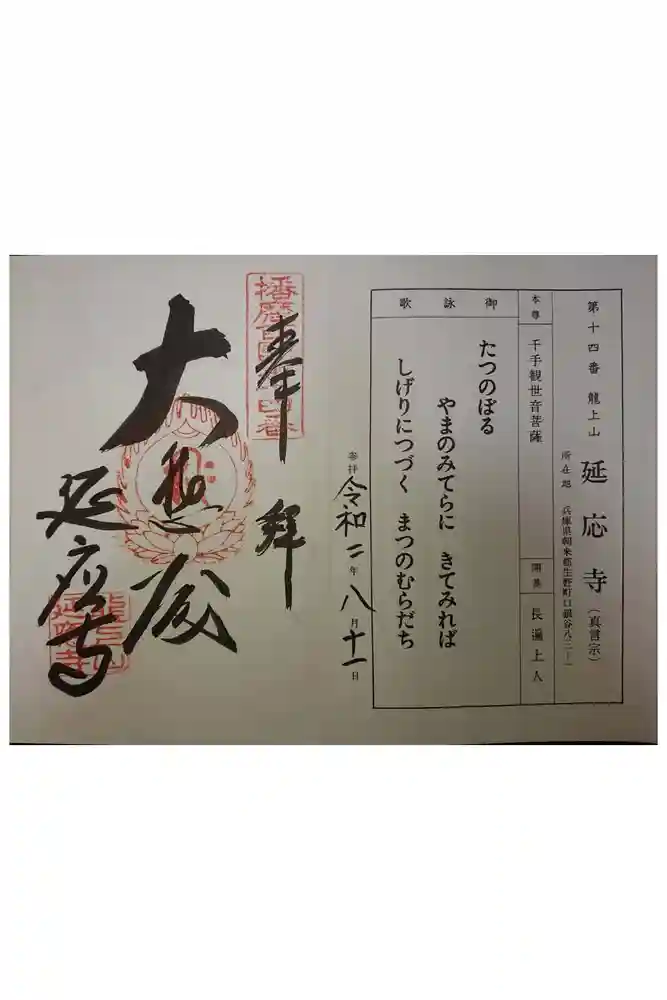 第十四番 龍上山 延応寺（真言宗）
所在地 兵庫県朝来郡生野町口銀谷八三ー一
本尊 千手観世音菩薩 開基 長遍上人
御詠歌
たつのぼる
やまのみてらに きてみれば
しげりにつづく まつのむらだち
参拝 令和二年八月十一日
奉拝
大悲殿
延應寺